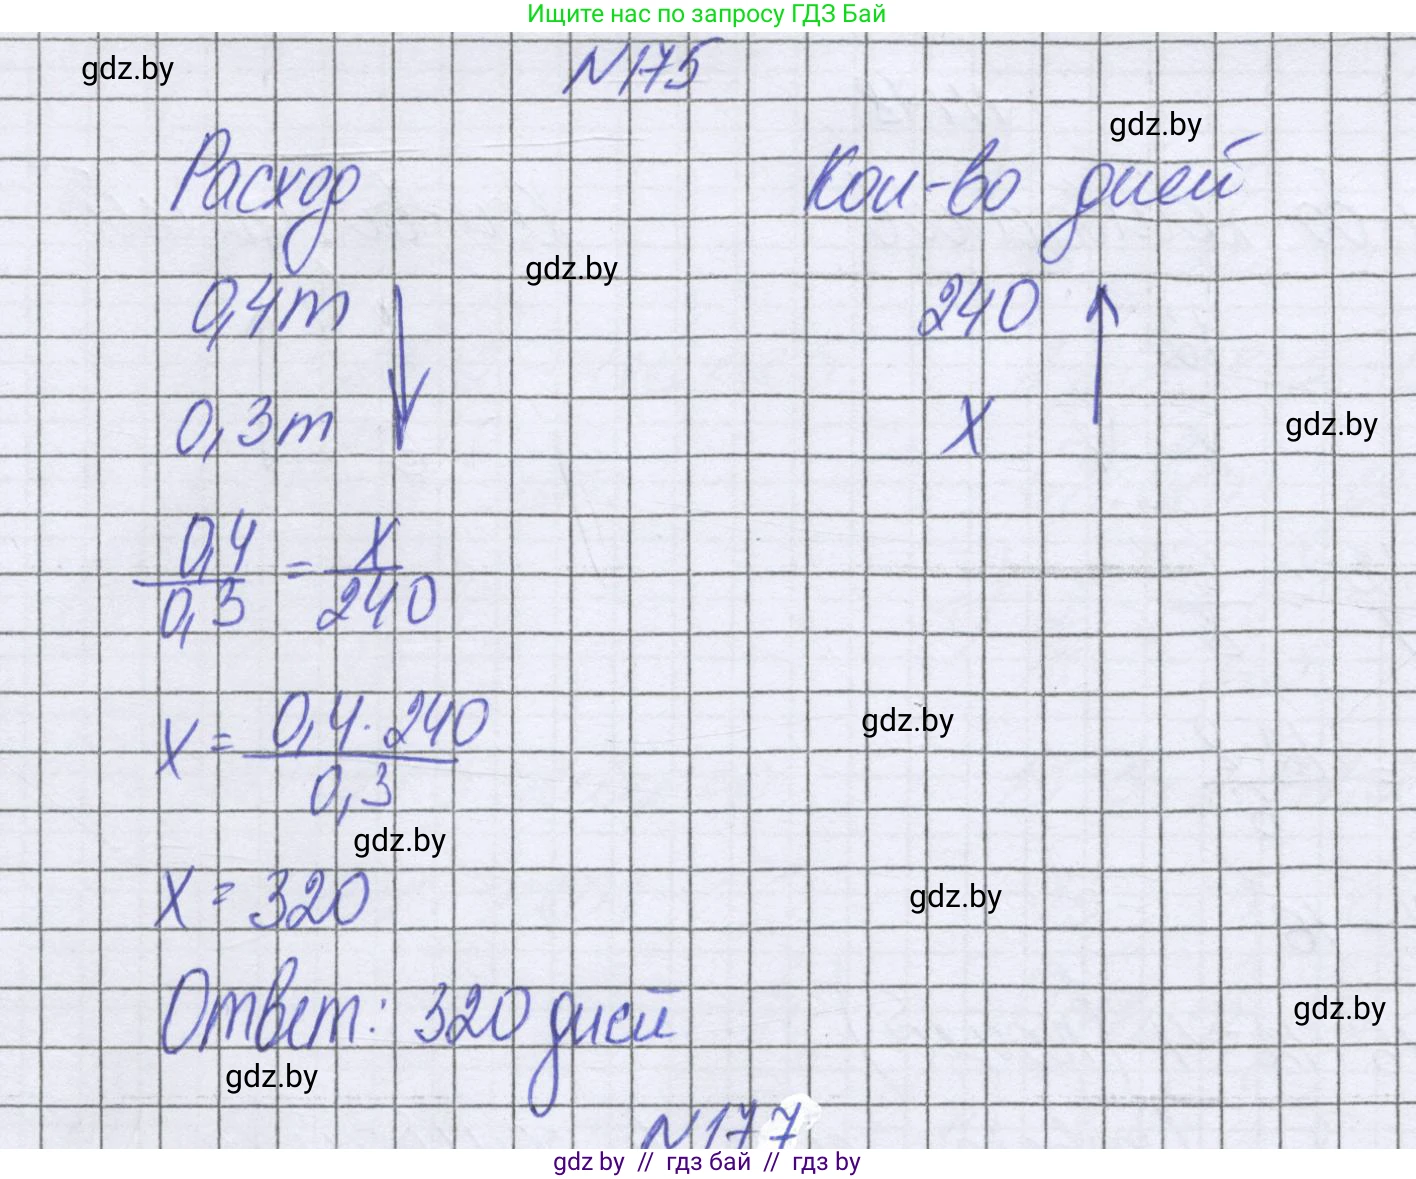 Ищите нас по запросу ГДЗ Бай
N175
gdz.by
gdz.by
Расход Кол-во дней
gdz.by
0,4т 240
0,3т x
gdz.by
0,4/0,3 = x/240
x = 0,4·240/0,3
gdz.by
gdz.by
x = 320
gdz.by
Ответ: 320 дней
gdz.by
gdz.by
N177
gdz by // гдз бай // гдз by